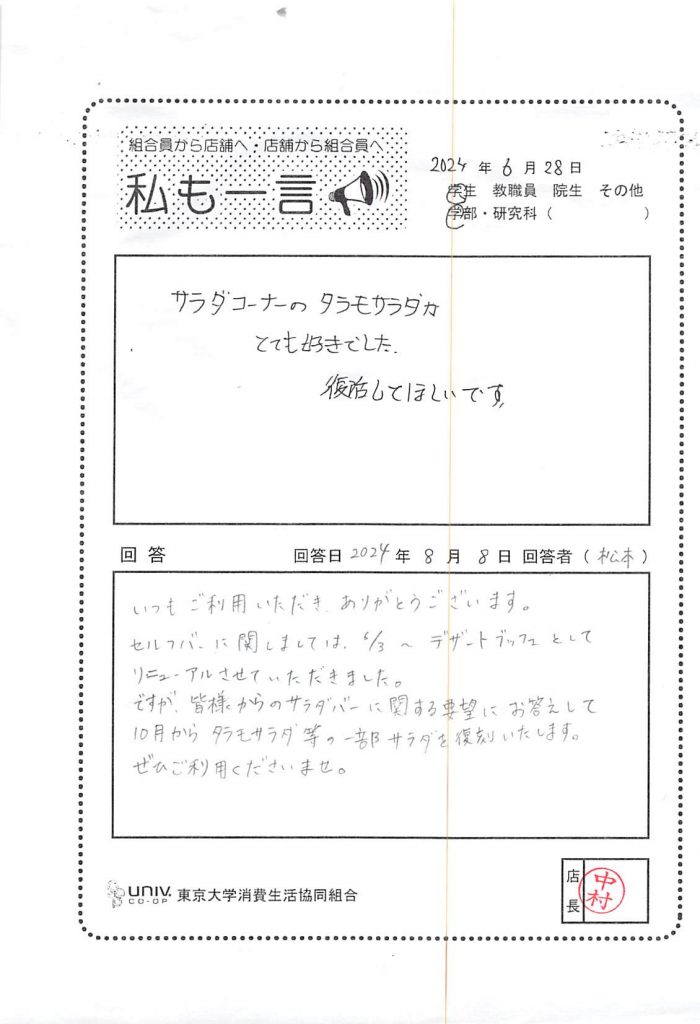 組合員から店舗へ・店舗から組合員へ
私も一言
2024年6月28日
学生 教職員 院生 その他
学部・研究科（ ）
サラダコーナーの タラモサラダが
とても好きでした.
復活してほしいです。
回答 回答日 2024年 8月 8日 回答者（松本）
いつもご利用いただき、ありがとうございます。
セルフバーに関しましては、6/3 〜 デザートブッフェとして
リニューアルさせていただきました。
ですが、皆様からのサラダバーに関する要望にお答えして
10月から タラモサラダ等の一部サラダを復刻いたします。
ぜひご利用くださいませ。
UNIV.
CO-OP
東京大学消費生活協同組合
店長
中村